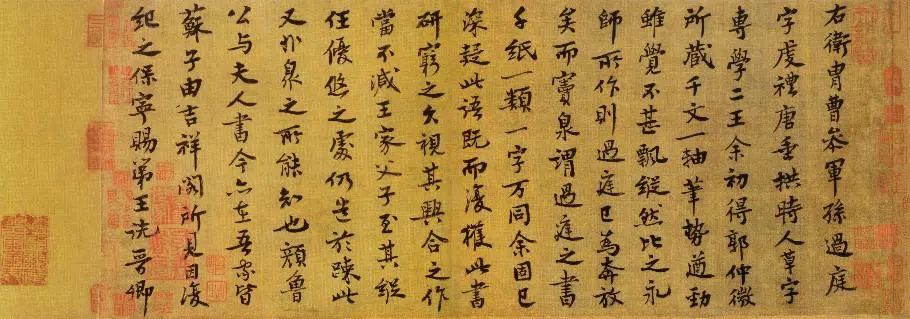 右衛胄曹叅軍孫過庭
字虔禮唐垂拱時人草字
專學二王余初得郭仲微
所蔵千文一軸筆勢遒勁
雖覺不甚飄縱然比之永
師所作則過庭已為奔放
矣而竇泉謂過庭之書
千紙一類一字万同余固已
深疑此語既而復獲此書
研窮之久視其興合之作
當不減王家父子至其縱
任優悠之處仍造於疎此
又非泉之所能知也顏魯
公与夫人書今亦在吾家皆
蘇子由吉祥閣所見因復
紀之保寧賜苐王詵晉卿